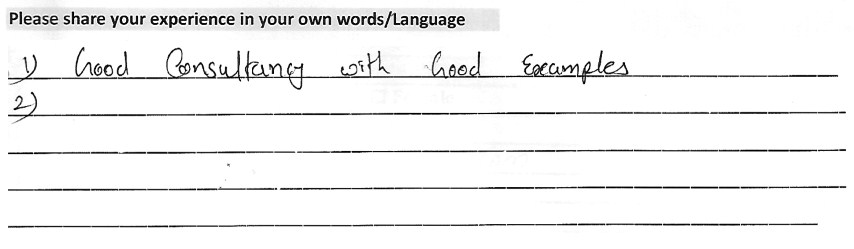 Please share your experience in your own words/Language
1) Good Consultancy with Good Examples
2)